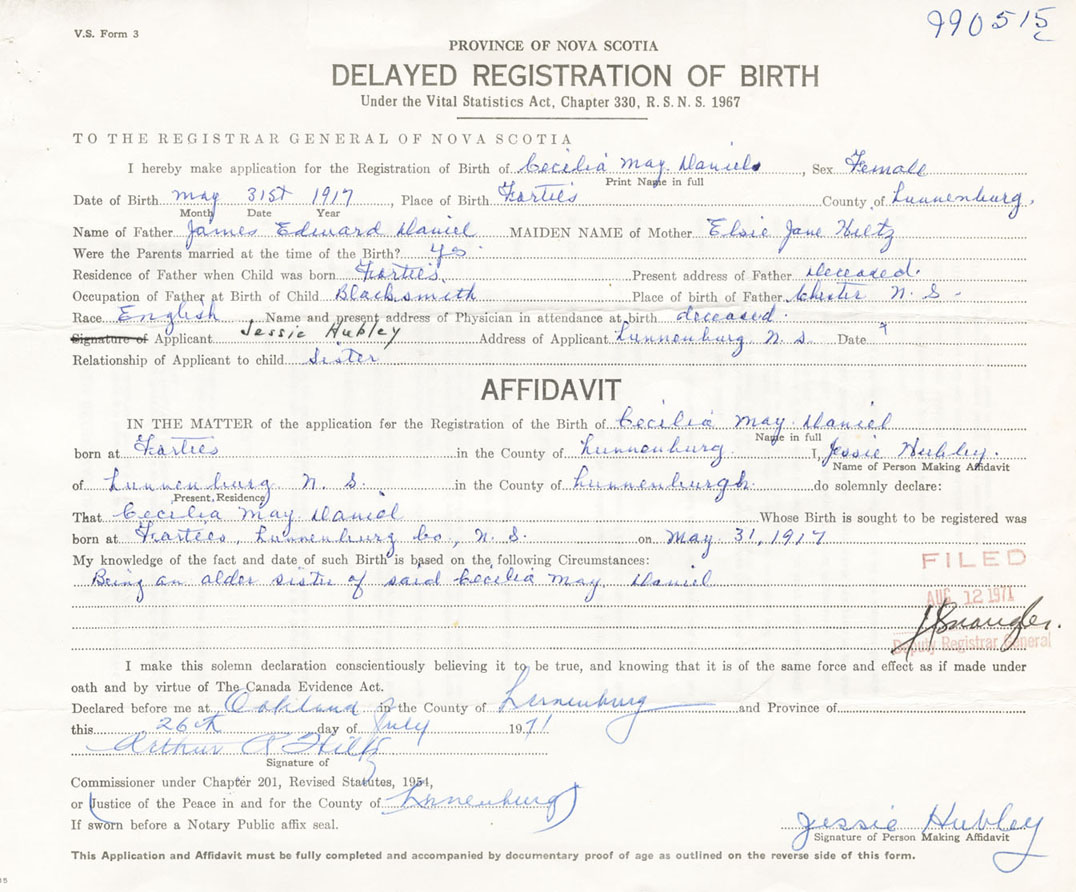 V.S. Form 3
990515
PROVINCE OF NOVA SCOTIA
DELAYED REGISTRATION OF BIRTH
Under the Vital Statistics Act, Chapter 330, R.S.N.S. 1967
TO THE REGISTRAR GENERAL OF NOVA SCOTIA
I hereby make application for the Registration of Birth of Cecilia May Daniels, Sex Female
Print Name in full
Date of Birth May 31st 1917, Place of Birth Forties County of Lunnenburg.
Month Date Year
Name of Father James Edward Daniel MAIDEN NAME of Mother Elsie Jane Hiltz
Were the Parents married at the time of the Birth? yes
Residence of Father when Child was born Forties Present address of Father Deceased.
Occupation of Father at Birth of Child Blacksmith Place of birth of Father Chester N.S.
Race English Name and present address of Physician in attendance at birth deceased.
Signature of Applicant Jessie Hubley Address of Applicant Lunnenburg N.S. Date
Relationship of Applicant to child Sister
AFFIDAVIT
IN THE MATTER of the application for the Registration of the Birth of Cecilia May Daniel
Name in full
born at Forties in the County of Lunnenburg. I, Jessie Hubley.
Name of Person Making Affidavit
of Lunnenburg N.S. in the County of Lunnenburgh. do solemnly declare:
Present Residence
That Cecilia May Daniel Whose Birth is sought to be registered was
born at Forties, Lunnenburg Co., N.S. on May 31, 1917
My knowledge of the fact and date of such Birth is based on the following Circumstances:
Being an older sister of said Cecilia May Daniel
FILED
AUG 12 1971
Deputy Registrar General
I make this solemn declaration conscientiously believing it to be true, and knowing that it is of the same force and effect as if made under
oath and by virtue of The Canada Evidence Act.
Declared before me at Oakland in the County of Lunenburg and Province of
this 26th day of July 1971
Arthur R Hiltz
Signature of
Commissioner under Chapter 201, Revised Statutes, 1954,
or (Justice of the Peace in and for the County of Lunenburg)
If sworn before a Notary Public affix seal.
Jessie Hubley
Signature of Person Making Affidavit
This Application and Affidavit must be fully completed and accompanied by documentary proof of age as outlined on the reverse side of this form.